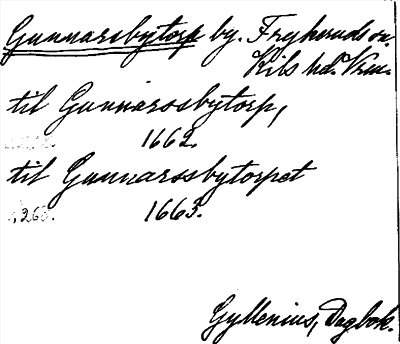 Gunnarsbytorp by. Fryksunds sn.
Kils hd. Vrm.
til Gunnarssbytorp,
1662.
til Gunnarssbytorpet
, 268. 1663.
Gyllenius, Dagbok.